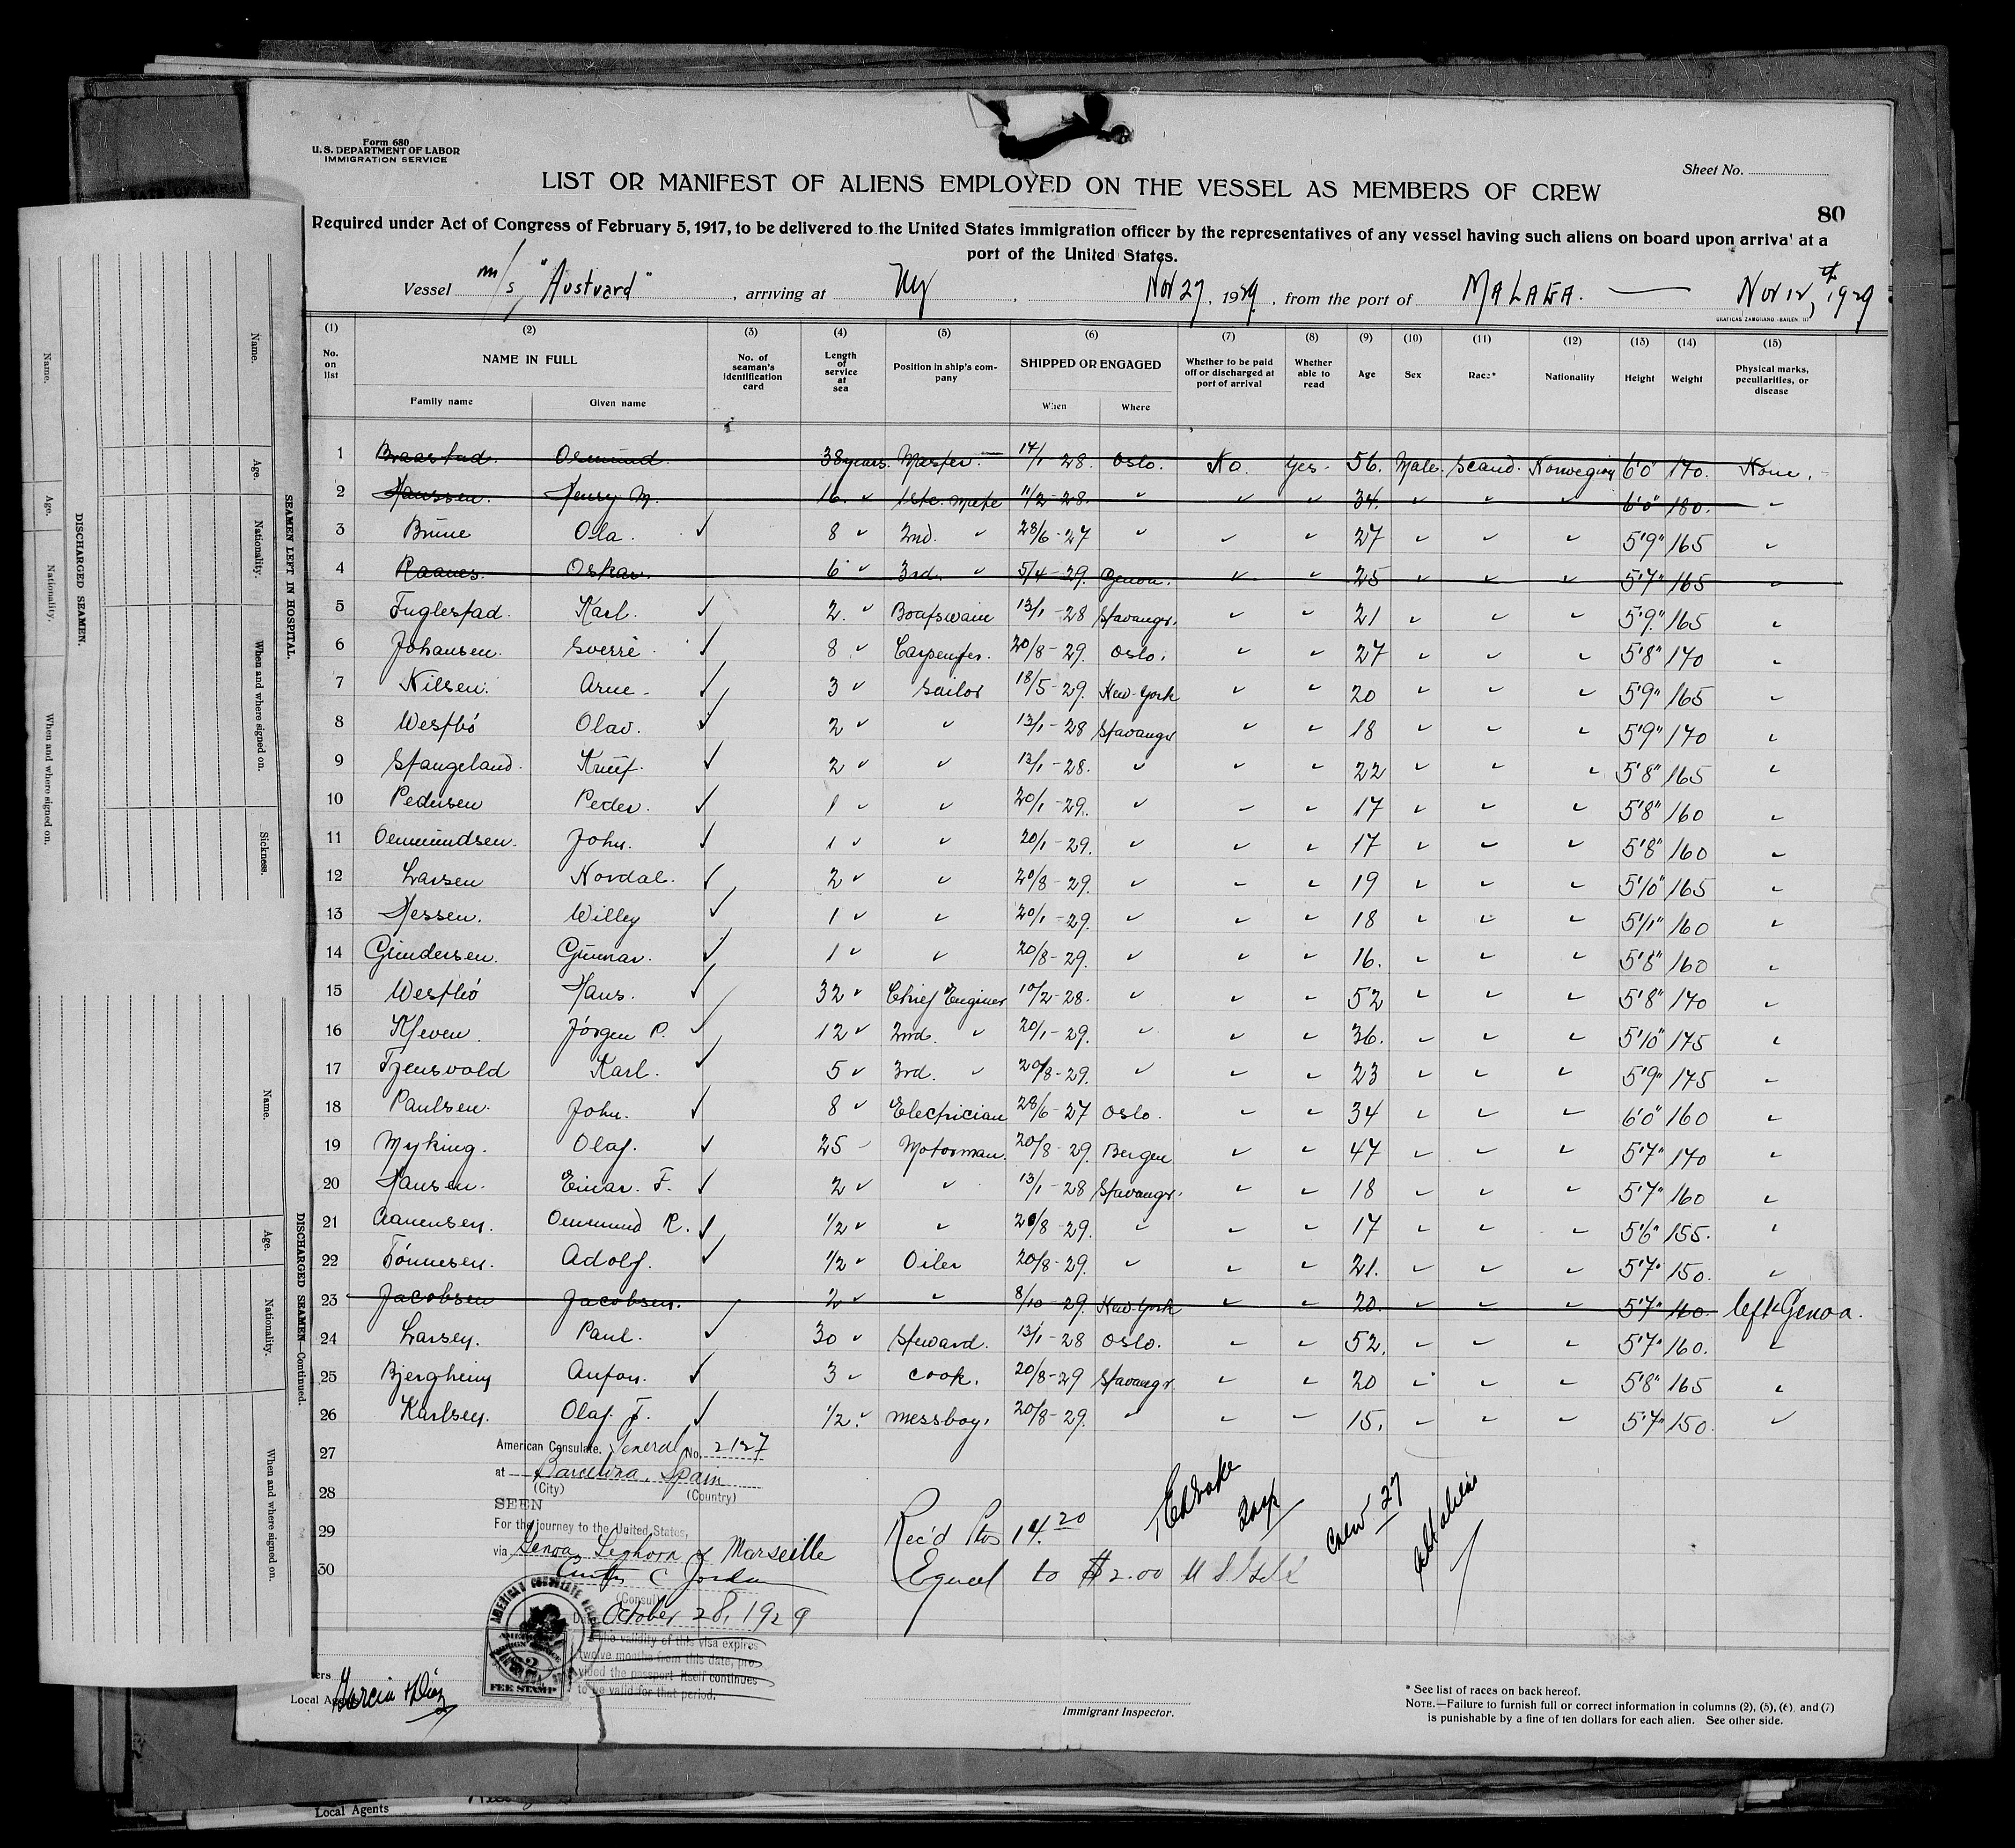 Form 680
U. S. DEPARTMENT OF LABOR
IMMIGRATION SERVICE
Sheet No.
LIST OR MANIFEST OF ALIENS EMPLOYED ON THE VESSEL AS MEMBERS OF CREW
80
Required under Act of Congress of February 5, 1917, to be delivered to the United States immigration officer by the representatives of any vessel having such aliens on board upon arrival at a
port of the United States.
Vessel m/s "Austvard", arriving at NY, Nov 27, 1929, from the port of MALAGA. — Nov 12, 1929
GRAFICAS ZAMORANO.-BAILEN,
(1) (2) (3) (4) (5) (6) (7) (8) (9) (10) (11) (12) (13) (14) (15)
No. on list NAME IN FULL Family name Given name No. of seaman's identification card Length of service at sea Position in ship's company SHIPPED OR ENGAGED When Where Whether to be paid off or discharged at port of arrival Whether able to read Age Sex Race* Nationality Height Weight Physical marks, peculiarities, or disease
1 Braastad. Osmund. 38 years. Master. 14/1-28. Oslo. No. Yes. 56. Male. Scand. Norwegian 6'0" 170. None.
2 Hanssen. Henry M. 16. 1ste. Mate 11/2-28. 34. 6'0" 180.
3 Brune Ola. 8 2nd. 28/6-27 27 5'9" 165
4 Raanes. Oskar. 6 3rd. 5/4-29. Genoa. 25 5'7" 165
5 Fuglestad. Karl. 2. Boatswain 13/1-28 Stavanger. 21 5'9" 165
6 Johansen. Sverre. 8 Carpenter. 20/8-29. Oslo. 27 5'8" 170
7 Nilsen. Arne. 3 Sailor 18/5-29. New-York 20 5'9" 165
8 Westbö Olav. 2 13/1-28 Stavanger 18 5'9" 170
9 Stangeland. Knut. 2 13/1-28. 22 5'8" 165
10 Pedersen Peder. 1 20/1-29. 17 5'8" 160
11 Oenmundsen. John. 1 20/1-29. 17 5'8" 160
12 Larsen Nordal. 2 20/8-29. 19 5'10" 165
13 Hessen. Willey 1 20/1-29. 18 5'11" 160
14 Gundersen. Gunnar. 1 20/8-29. 16. 5'8" 160
15 Westbö Hans. 32 Chief Engineer 10/2-28. 52 5'8" 170
16 Kleven. Jörgen P. 12 2nd. 20/1-29. 36. 5'10" 175
17 Tjensvold Karl. 5 3rd. 20/8-29. 23 5'9" 175
18 Paulsen. John. 8 Electrician 28/6-27 Oslo. 34 6'0" 160
19 Myking. Olaf. 25 Motorman. 20/8-29. Bergen 47 5'7" 170
20 Hansen. Einar. F. 2 13/1-28 Stavanger. 18 5'7" 160
21 Aanensen. Ommund R. 1/2 20/8-29. 17 5'6" 155.
22 Tönnesen. Adolf. 1/2 Oiler 20/8-29. 21. 5'7" 150.
23 Jacobsen Jacobsen. 2 8/10-29. New York 20. 5'7" 160. left Genoa.
24 Larsen. Paul. 30 Steward. 13/1-28 Oslo. 52. 5'7" 160.
25 Bjergheim Anton. 3 Cook. 20/8-29 Stavanger 20 5'8" 165
26 Karlsen. Olaf. T. 1/2. Messboy. 20/8-29. 15. 5'7" 150.
27
28
29
30
American Consulate. General No. 2127
at Barcelona, Spain
(City) (Country)
SEEN
For the journey to the United States,
via Genoa, Leghorn & Marseille
Curtis C Jordan
(Consul)
Date October 28, 1929
The validity of this visa expires
twelve months from this date, pro-
vided the passport itself continues
to be valid for that period.
FEE STAMP
Rec'd Pts 14.20
Equal to $2.00
Crew 27
all aliens
Local Agents Garcia & Diaz
Immigrant Inspector.
* See list of races on back hereof.
NOTE.—Failure to furnish full or correct information in columns (2), (5), (6) and (7)
is punishable by a fine of ten dollars for each alien. See other side.
Local Agents
SEAMEN LEFT IN HOSPITAL.
Name. Age. Nationality. When and where signed on. Sickness.
DISCHARGED SEAMEN.
Name. Age. Nationality. When and where signed on.
DISCHARGED SEAMEN—Continued.
Name. Age. Nationality. When and where signed on.